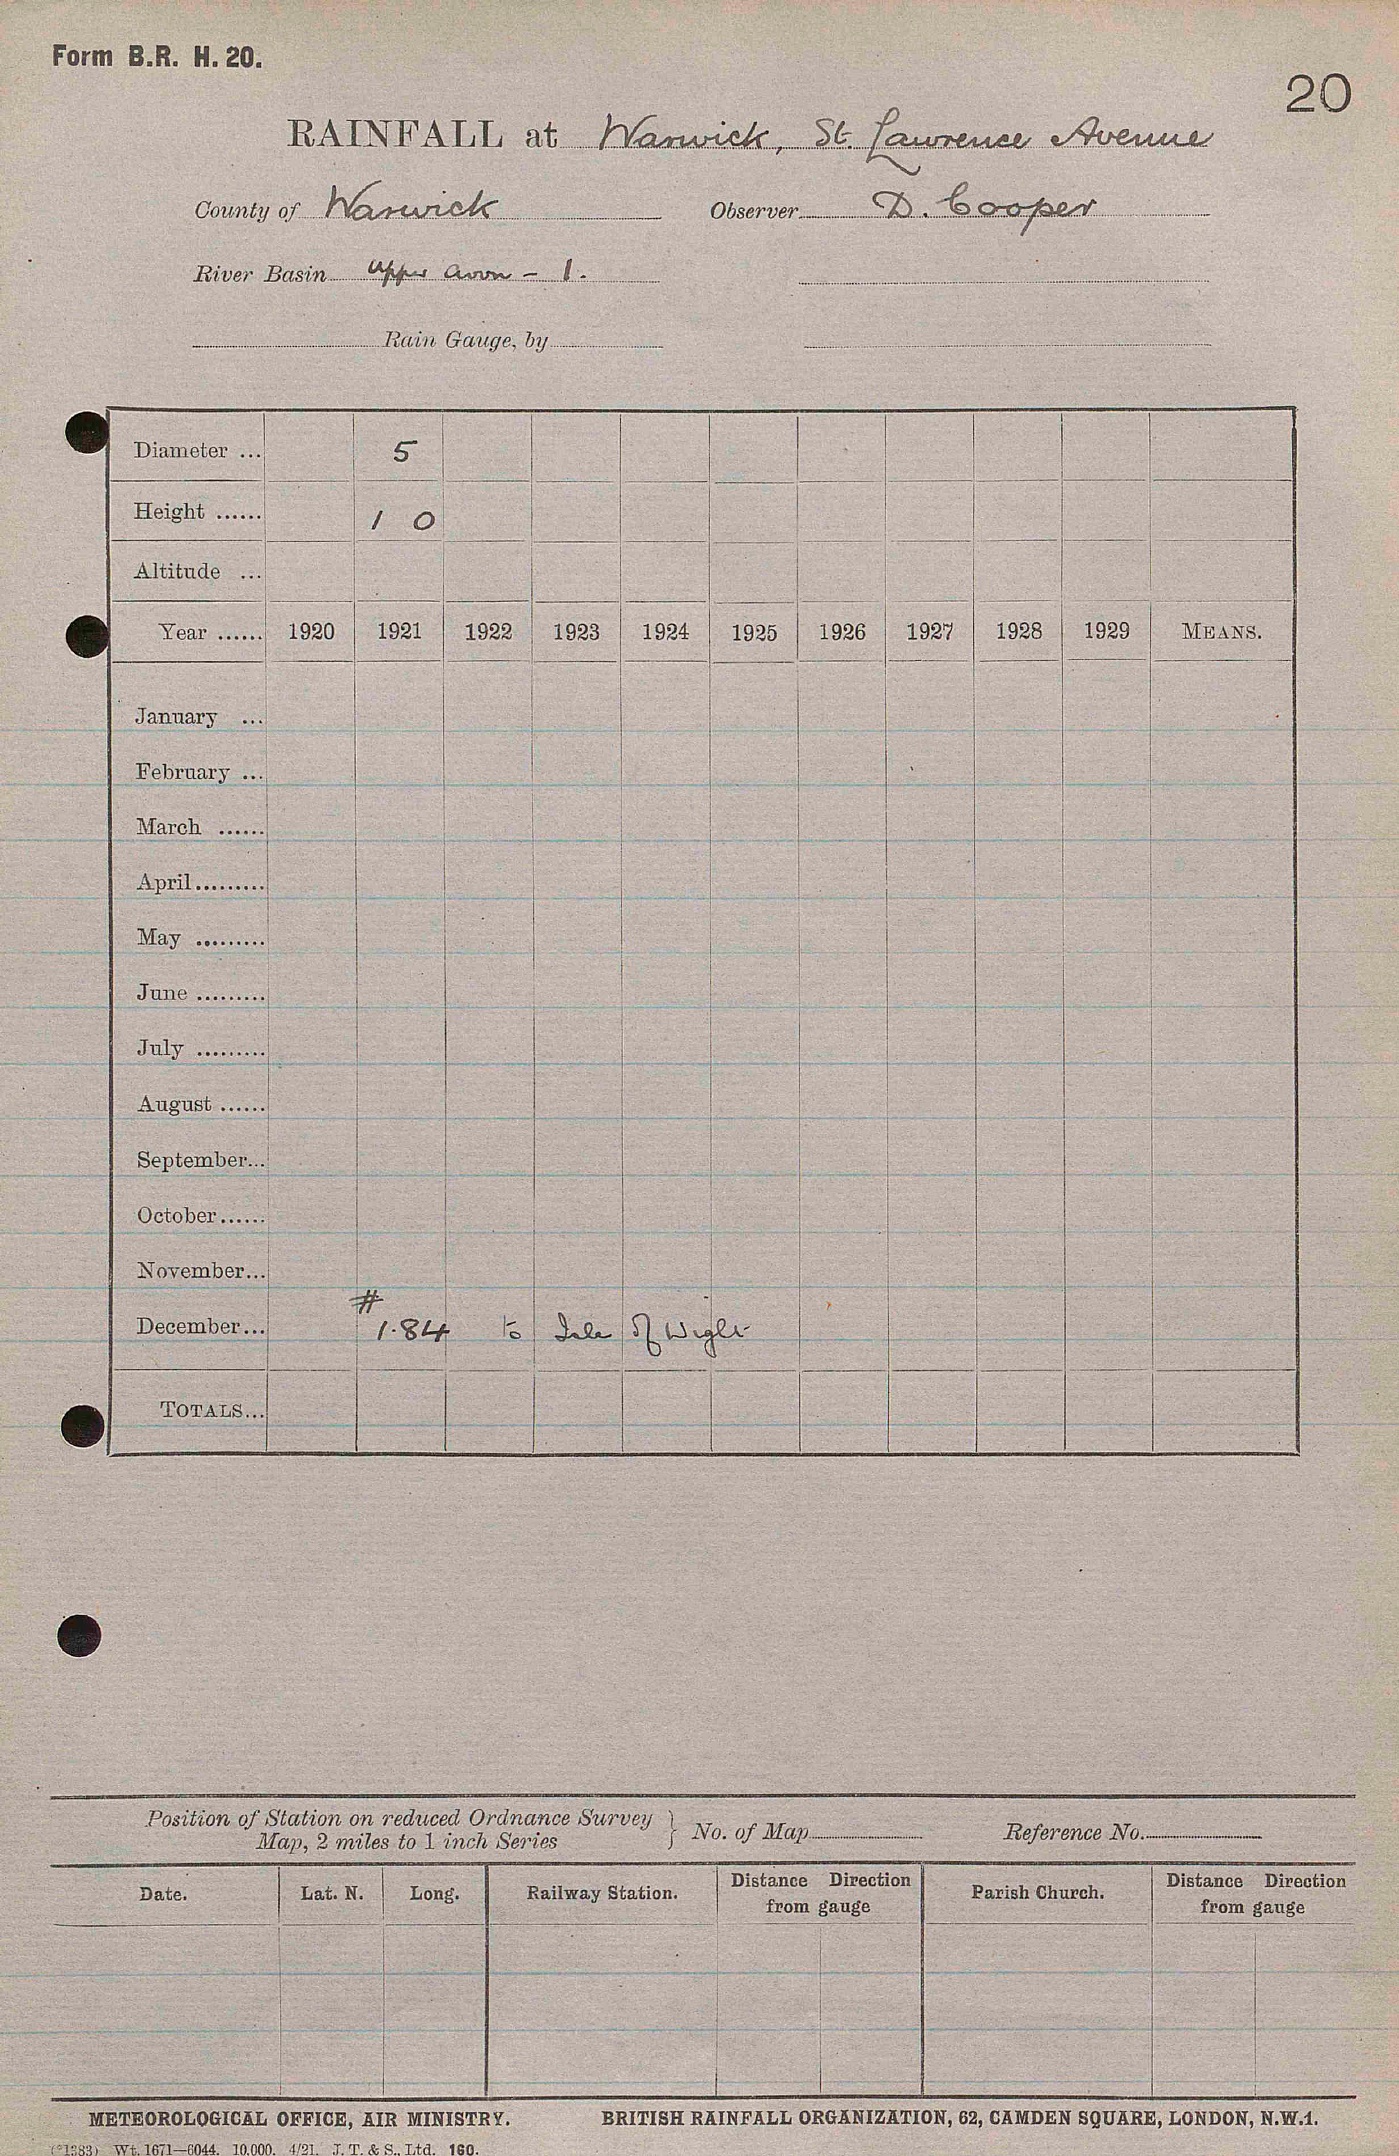 Form B.R. H. 20.
20
RAINFALL at Warwick, St. Lawrence Avenue
County of Warwick Observer D. Cooper
River Basin Upper Avon - 1.
Rain Gauge, by
Diameter ... 5
Height ...... 1 0
Altitude ...
Year ...... 1920 1921 1922 1923 1924 1925 1926 1927 1928 1929 MEANS.
January ...
February ...
March ......
April.........
May .........
June .........
July .........
August ......
September...
October......
November...
#
December... 1.84 to Isle of Wight
TOTALS...
Position of Station on reduced Ordnance Survey
Map, 2 miles to 1 inch Series } No. of Map Reference No.
Date. Lat. N. Long. Railway Station. Distance Direction from gauge Parish Church. Distance Direction from gauge
METEOROLOGICAL OFFICE, AIR MINISTRY. BRITISH RAINFALL ORGANIZATION, 62, CAMDEN SQUARE, LONDON, N.W.1.
Wt. 1671—6044. 10,000. 4/21. J. T. & S., Ltd. 160.